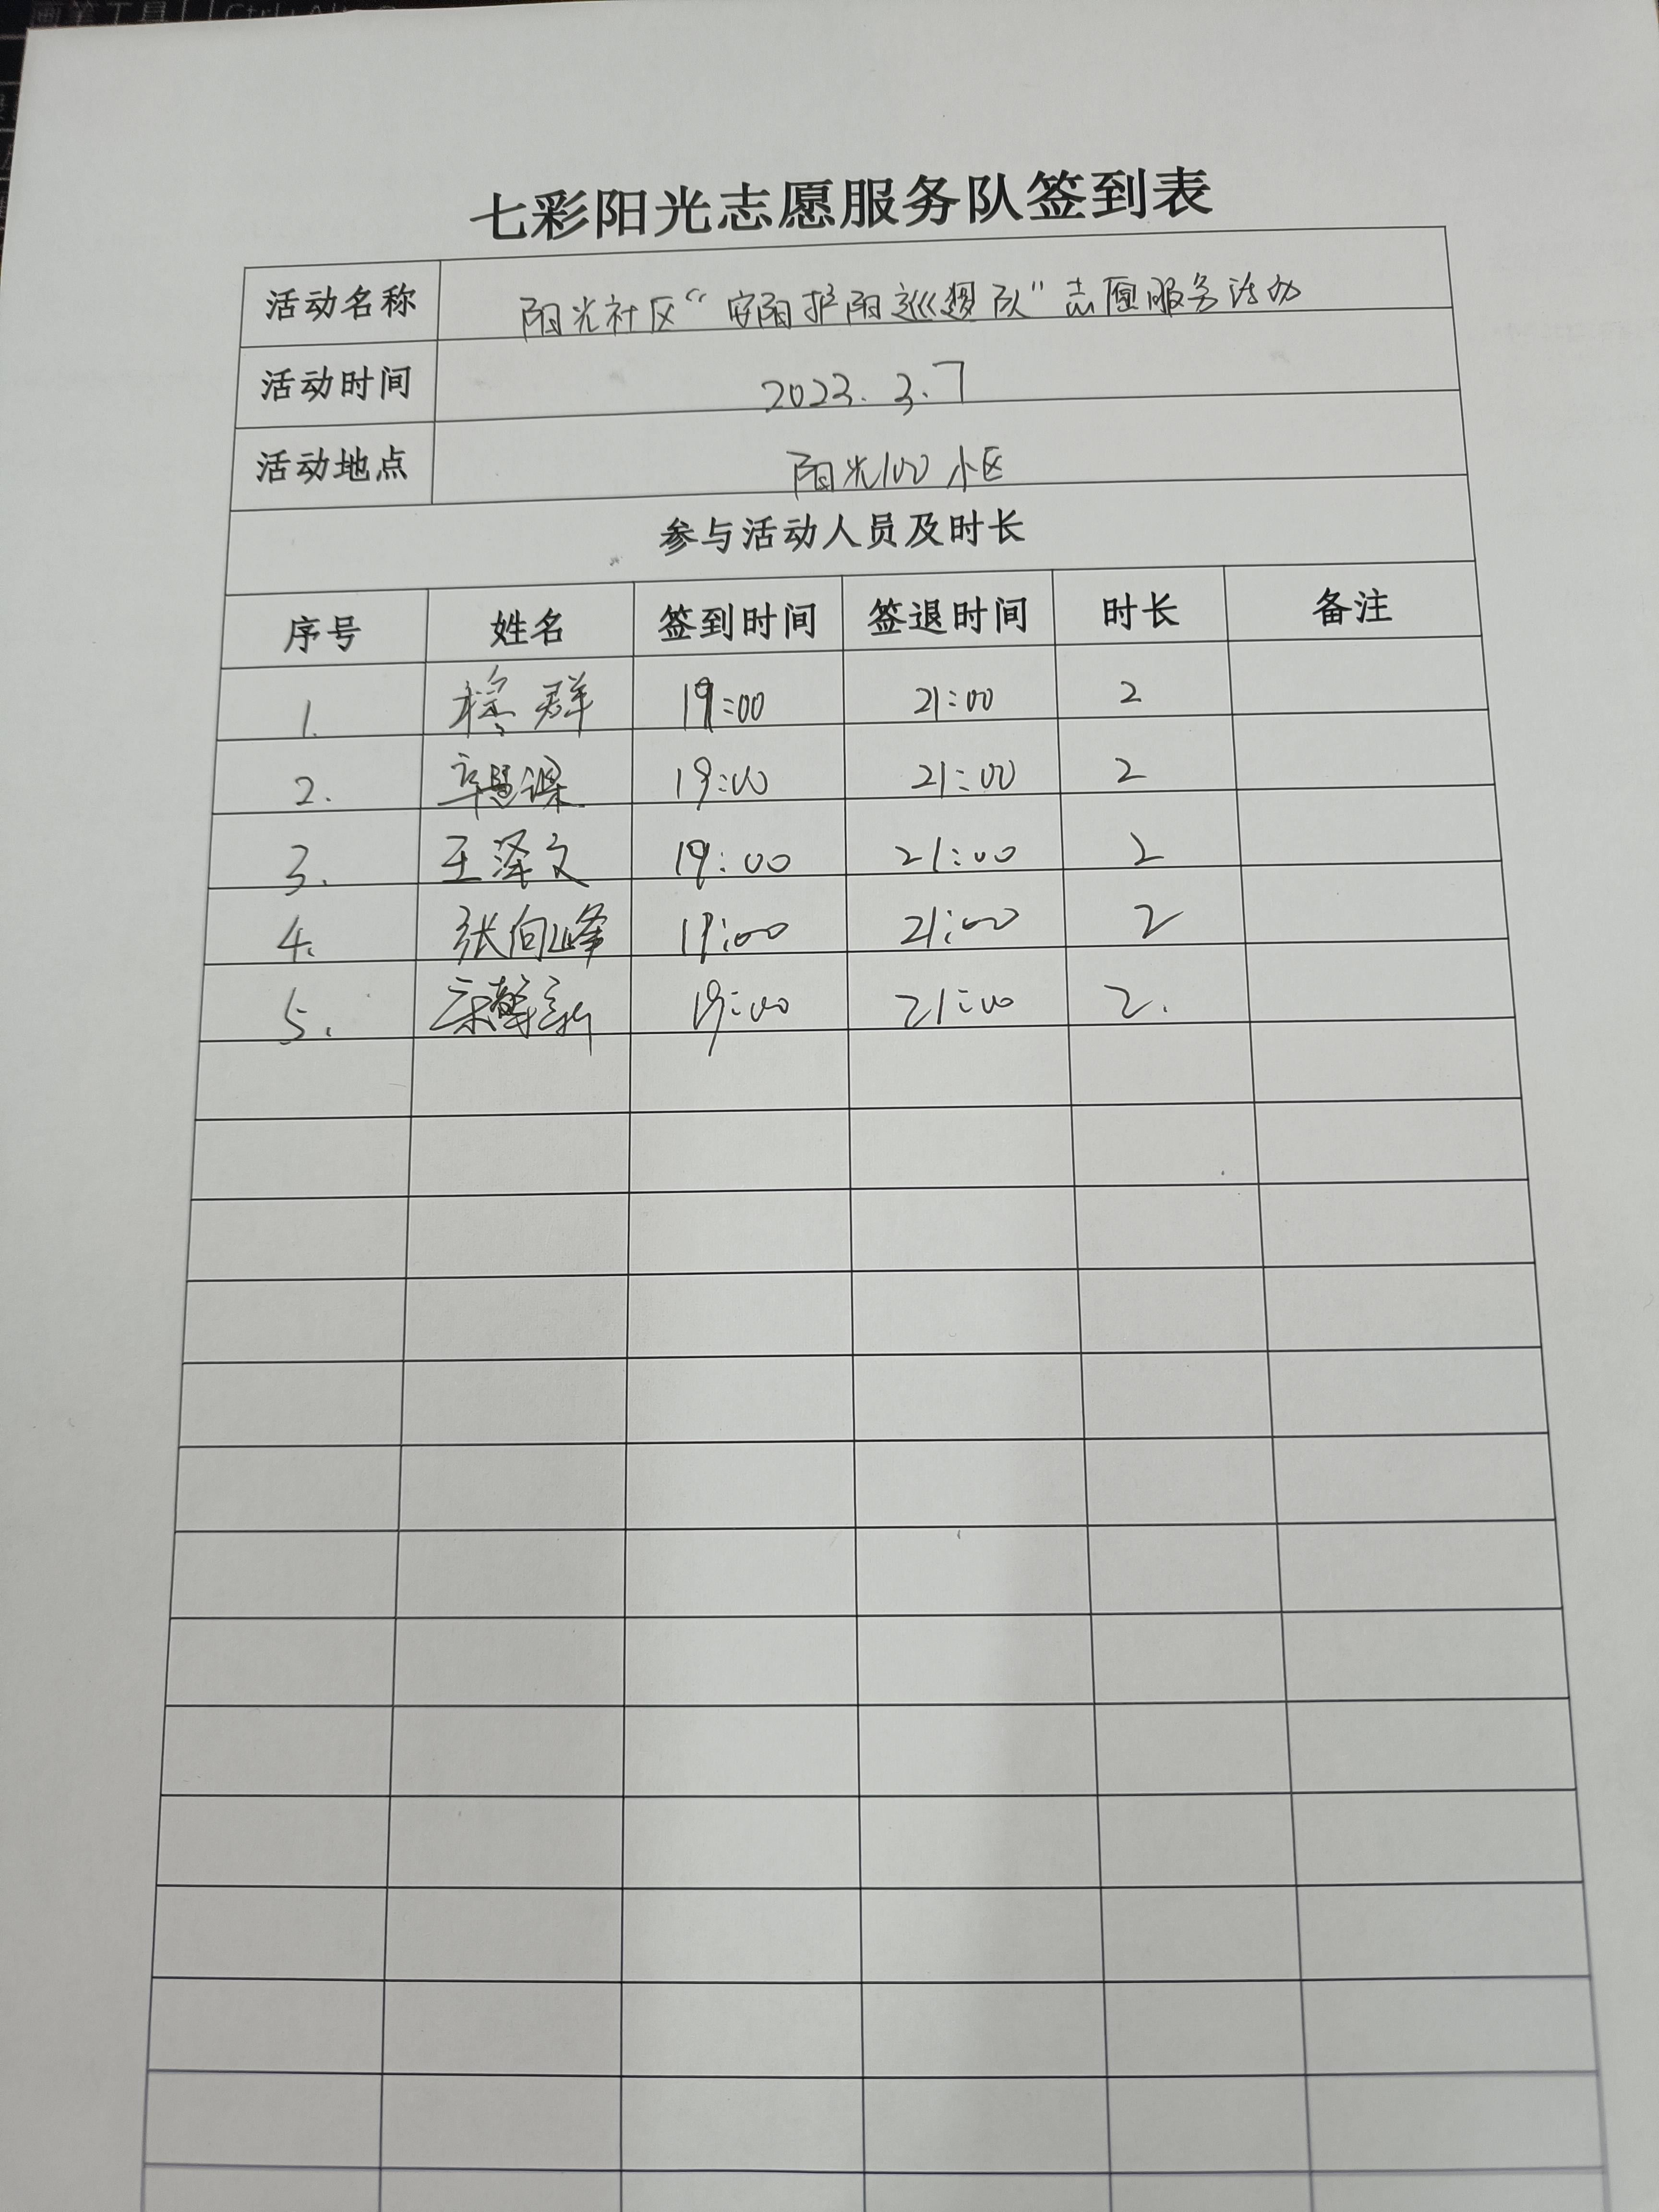 画笔工具 Ctrl+Al
七彩阳光志愿服务队签到表
活动名称 阳光社区“安阳护阳巡逻队”志愿服务活动
活动时间 2023.3.7
活动地点 阳光100小区
参与活动人员及时长
序号 姓名 签到时间 签退时间 时长 备注
1. 群 19:00 21:00 2
2. 19:00 21:00 2
3. 王泽文 19:00 21:00 2
4. 张向峰 19:00 21:00 2
5. 19:00 21:00 2.